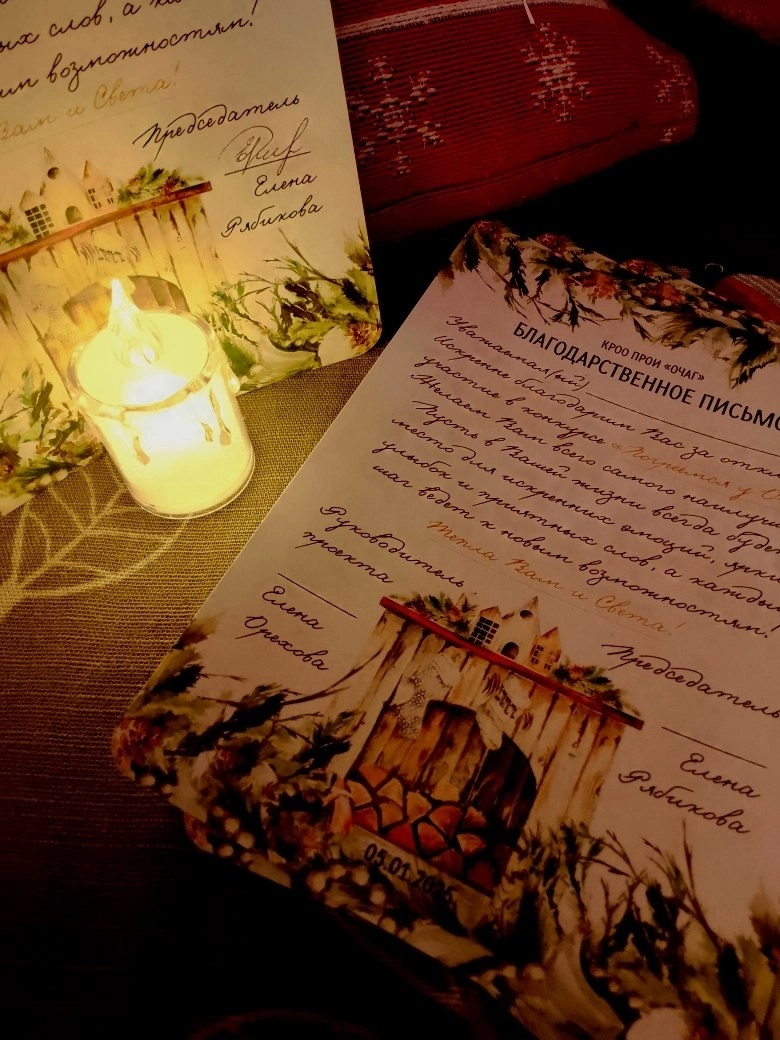 ых слов, а ка
им возможностям!
Вам и Света!
Председатель
Елена
Рябикова
КРОО ПРОИ «ОЧАГ»
БЛАГОДАРСТВЕННОЕ ПИСЬМО
Уважаемая(ый)
Искренне благодарим Вас за откл
участие в конкурсе «Погреемся у О
Желаем Вам всего самого наилучш
Пусть в Вашей жизни всегда буде
место для искренних эмоций, ярки
улыбок и приятных слов, а кажды
шаг ведет к новым возможностям!
Тепла Вам и Света!
Руководитель
проекта
Елена
Орехова
Председатель
Елена
Рябикова
05.01.2026